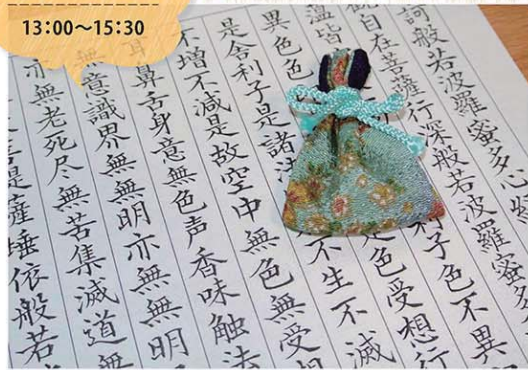 13:00〜15:30
訶般若波羅蜜多心
自在菩薩行深般若波羅蜜多
皆 利子色不異
異色色 色受想行
是舍利子是諸法 不生不滅
不増不減是故空中無色無受想
耳鼻舌身意無色声香味触法
無意識界無無明亦無無明
亦無老死尽無苦集滅道無
薩埵依般若